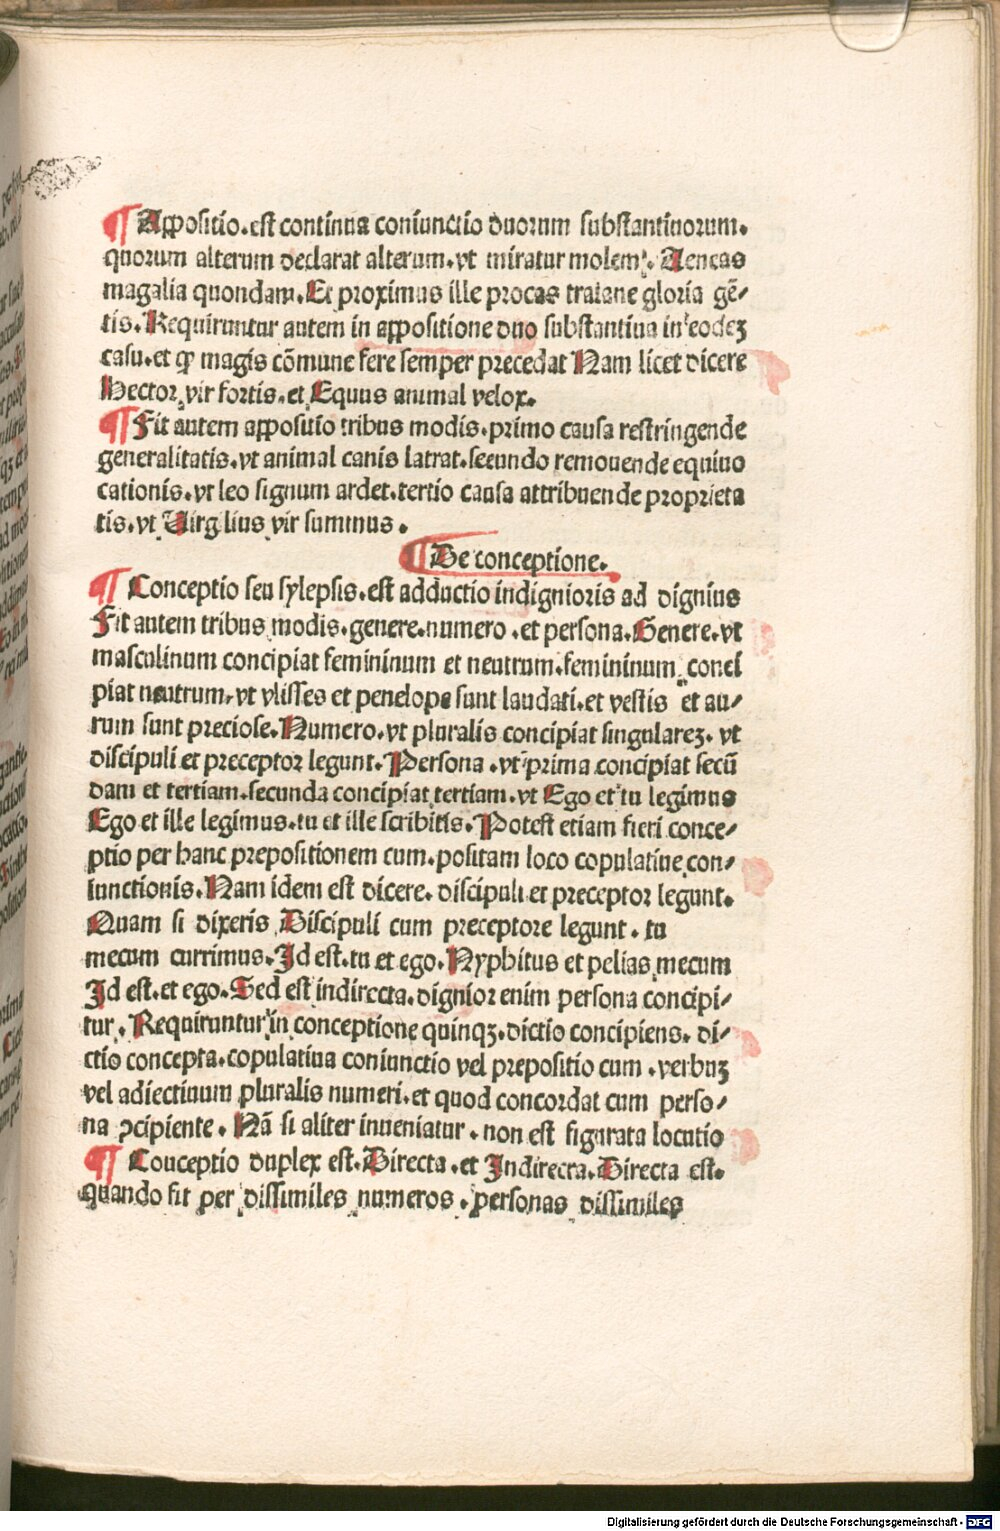 ¶ Appositio.est continua coniunctio duorum substantiuorum.
quorum alterum declarat alterum.vt miratur molem. Aeneas
magalia quondam.Et proximus ille procas traiane gloria gē/
tis.Requiruntur autem in appositione duo substantiua in eodeꝫ
casu.et ꝙ magis cōmune fere semper precedat Nam licet dicere
Hector vir fortis.et Equus animal velox.
¶ Fit autem appositio tribus modis.primo causa restringende
generalitatis.vt animal canis latrat.secundo remouende equiuo
cationis.vt leo signum ardet.tertio causa attribuende proprieta
tis.vt Virgilius vir summus.
¶ De conceptione.
¶ Conceptio seu sylepsis.est adductio indignioris ad dignius
Fit autem tribus modis.genere.numero .et persona.Genere.vt
masculinum concipiat femininum et neutrum.femininum conci
piat neutrum.vt vlisses et penelope sunt laudati.et vestis et au/
rum sunt preciose.Numero.vt pluralis concipiat singulareꝫ. vt
discipuli et preceptor legunt.Persona .vt prima concipiat secū
dam et tertiam.secunda concipiat tertiam.vt Ego et tu legimus
Ego et ille legimus.tu et ille scribitis.Potest etiam fieri conce/
ptio per hanc prepositionem cum.positam loco copulatiue con/
iunctionis.Nam idem est dicere. discipuli et preceptor legunt.
Quam si dixeris Discipuli cum preceptore legunt . tu
mecum currimus.Id est.tu et ego.Nyphitus et pelias mecum
Id est.et ego.Sed est indirecta.dignior enim persona concipi/
tur. Requiruntur in conceptione quinqꝫ.dictio concipiens. di/
ctio concepta.copulatiua coniunctio vel prepositio cum .verbuꝫ
vel adiectiuum pluralis numeri.et quod concordat cum perso/
na ↄcipiente. Nā si aliter inueniatur . non est figurata locutio
¶ Conceptio duplex est.Directa .et Indirecta.Directa est.
quando fit per dissimiles numeros . personas dissimiles
Digitalisierung gefördert durch die Deutsche Forschungsgemeinschaft - DFG